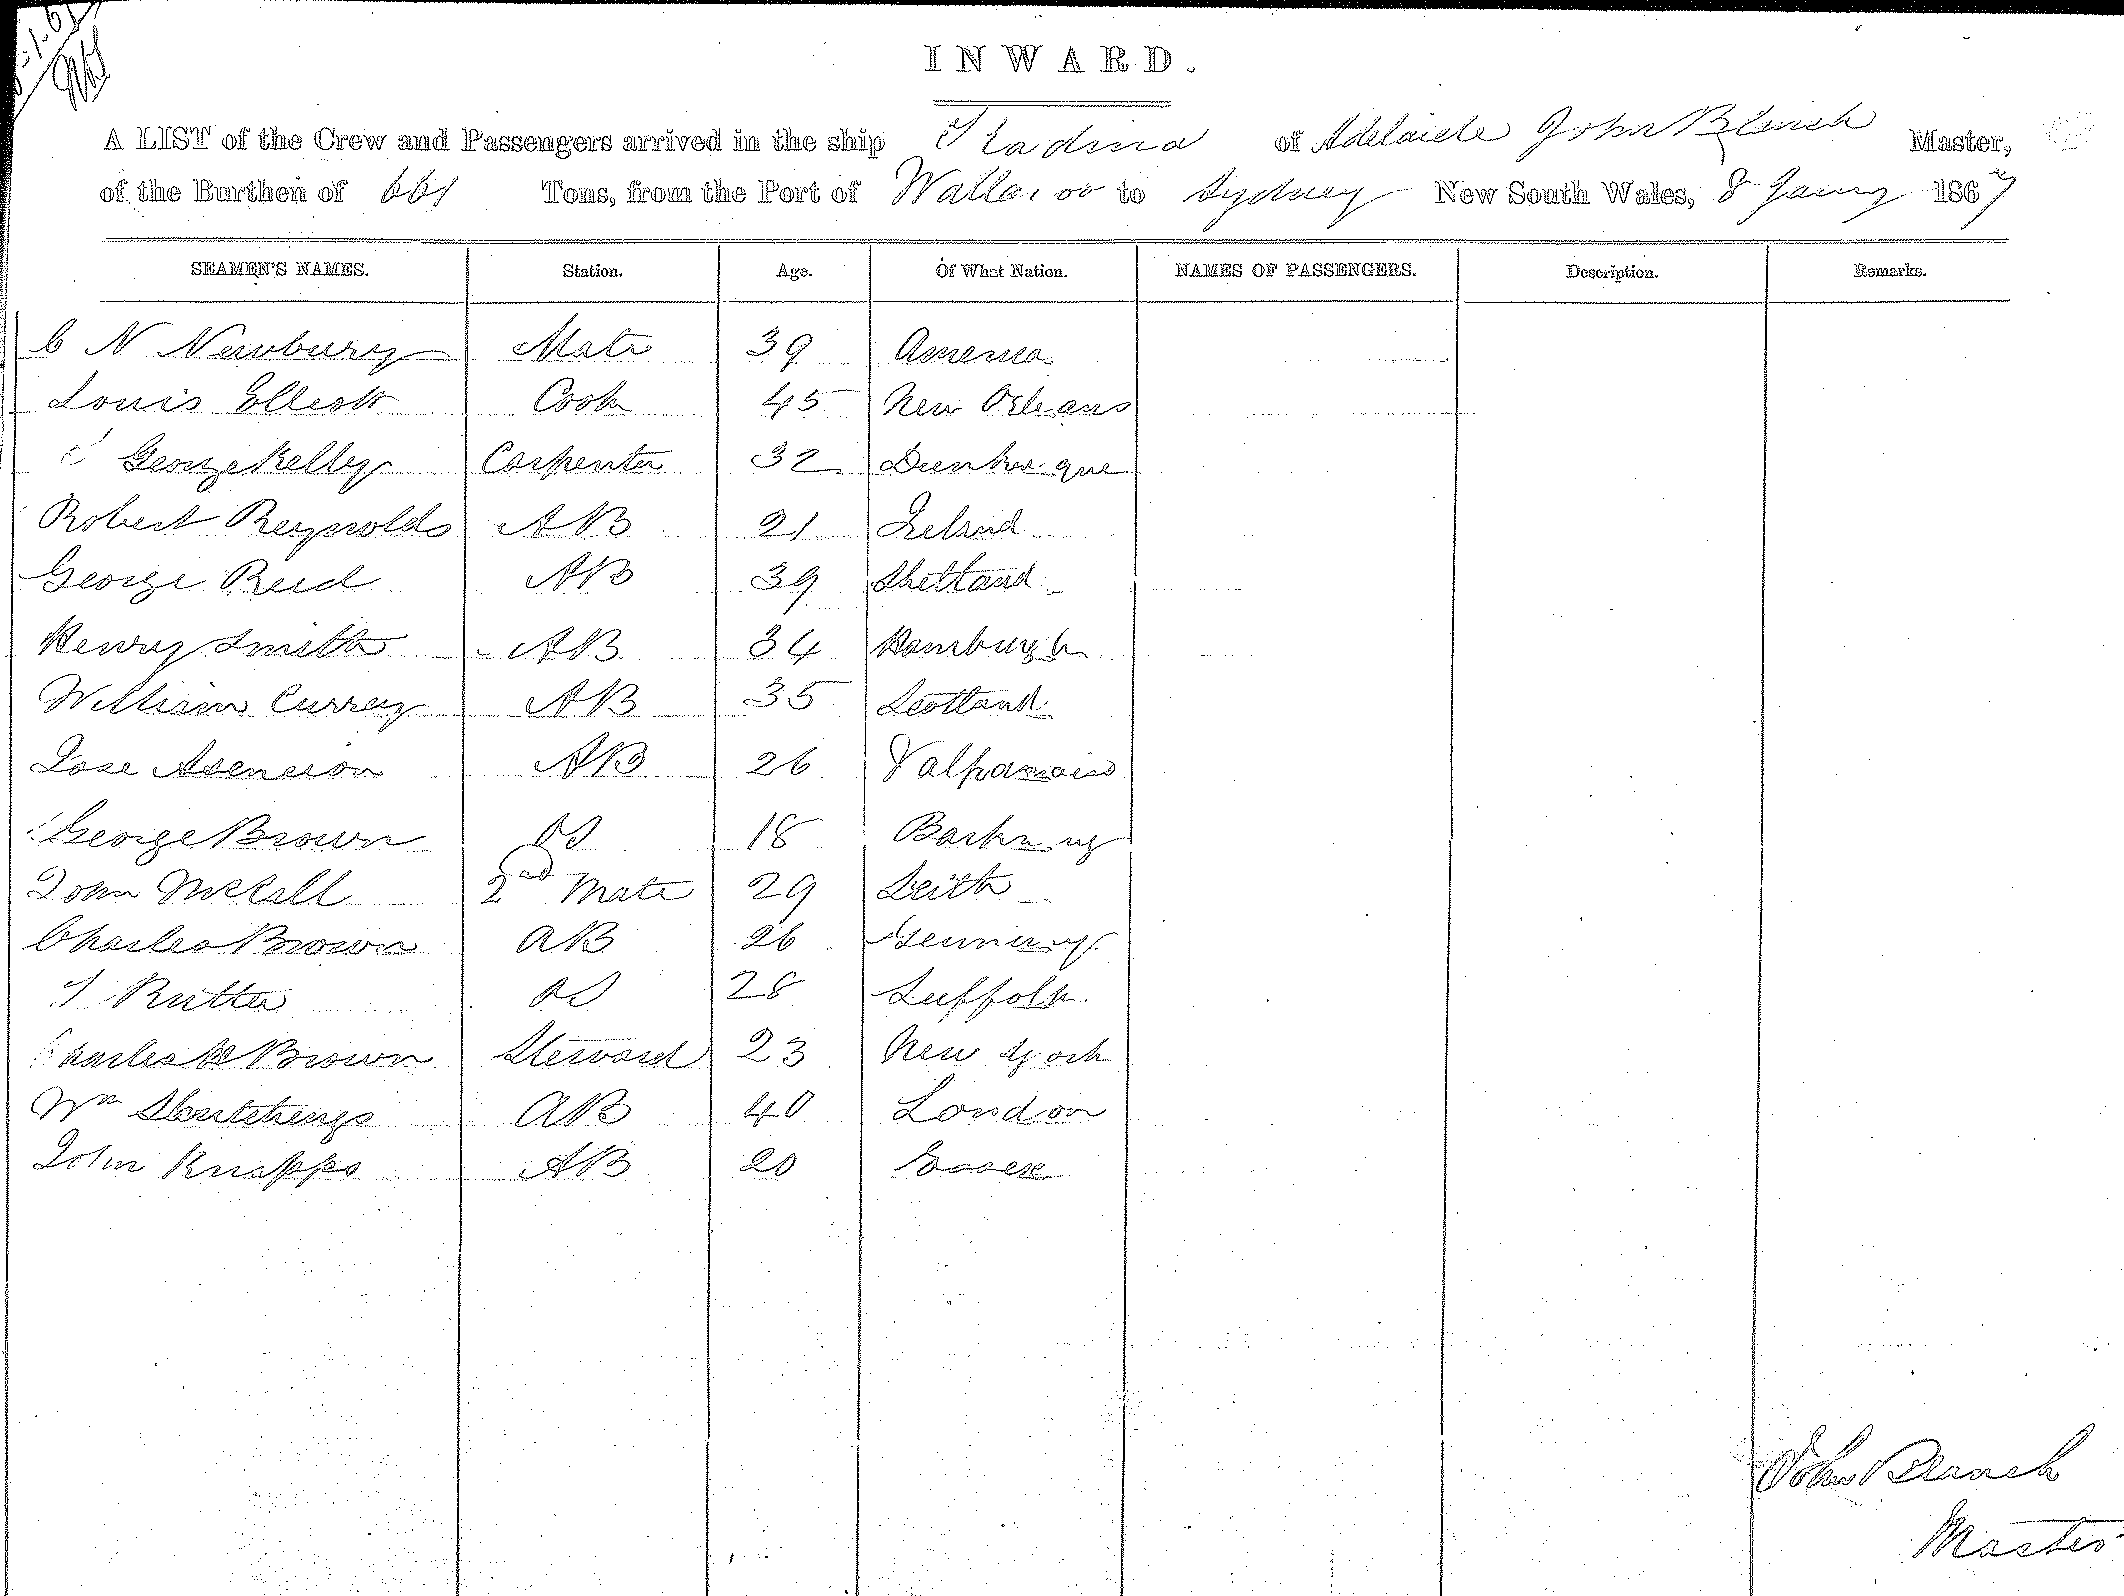 INWARD.
A LIST of the Crew and Passengers arrived in the ship Kadina of Adelaide John Blanch Master,
of the Burthen of 661 Tons, from the Port of Wallaroo to Sydney New South Wales, 8 Jany 1867
SEAMEN'S NAMES. Station. Age. Of What Nation. NAMES OF PASSENGERS. Description. Remarks.
C N Newbury Mate 39 America
Louis Ellcott Cook 45 New Orleans
George Kelly Carpenter 32
Robert Reynolds AB 21 Ireland
George Reid AB 39 Shetland
Henry Smith AB 34 Hamburgh
William Currey AB 35 Scotland
Jose Asencion AB 26 Valparaiso
George Brown OS 18 Barking
John McCall 2nd Mate 29 Leith
Charles Brown AB 26 Germany
Rutter OS 28 Suffolk
Charles H Brown Steward 23 New York
Wm AB 40 London
John Knapps AB 20 Essex
John Blanch
Master